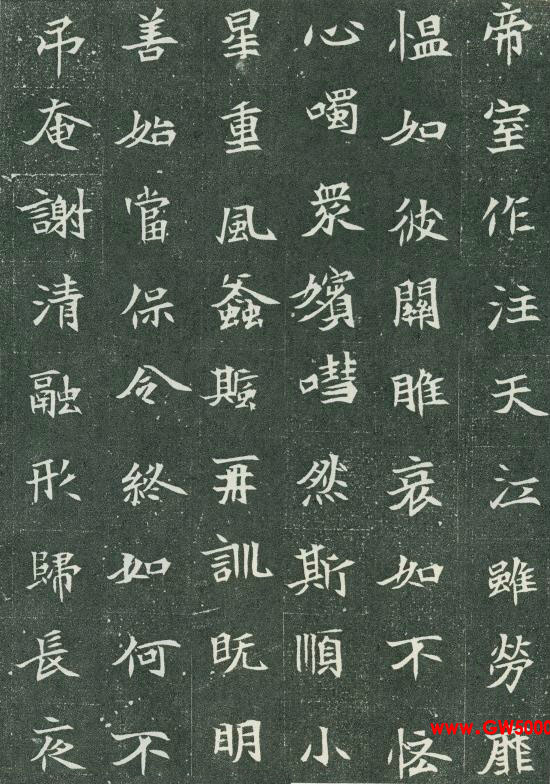 帝室作注天江雖勞靡
愠如彼關雎哀如不怪
心噣眾嬪嘒然斯順小
星重風螽蟴再訓既明
善始當保令終如何不
吊奄謝清融形歸長夜
www.GW5000